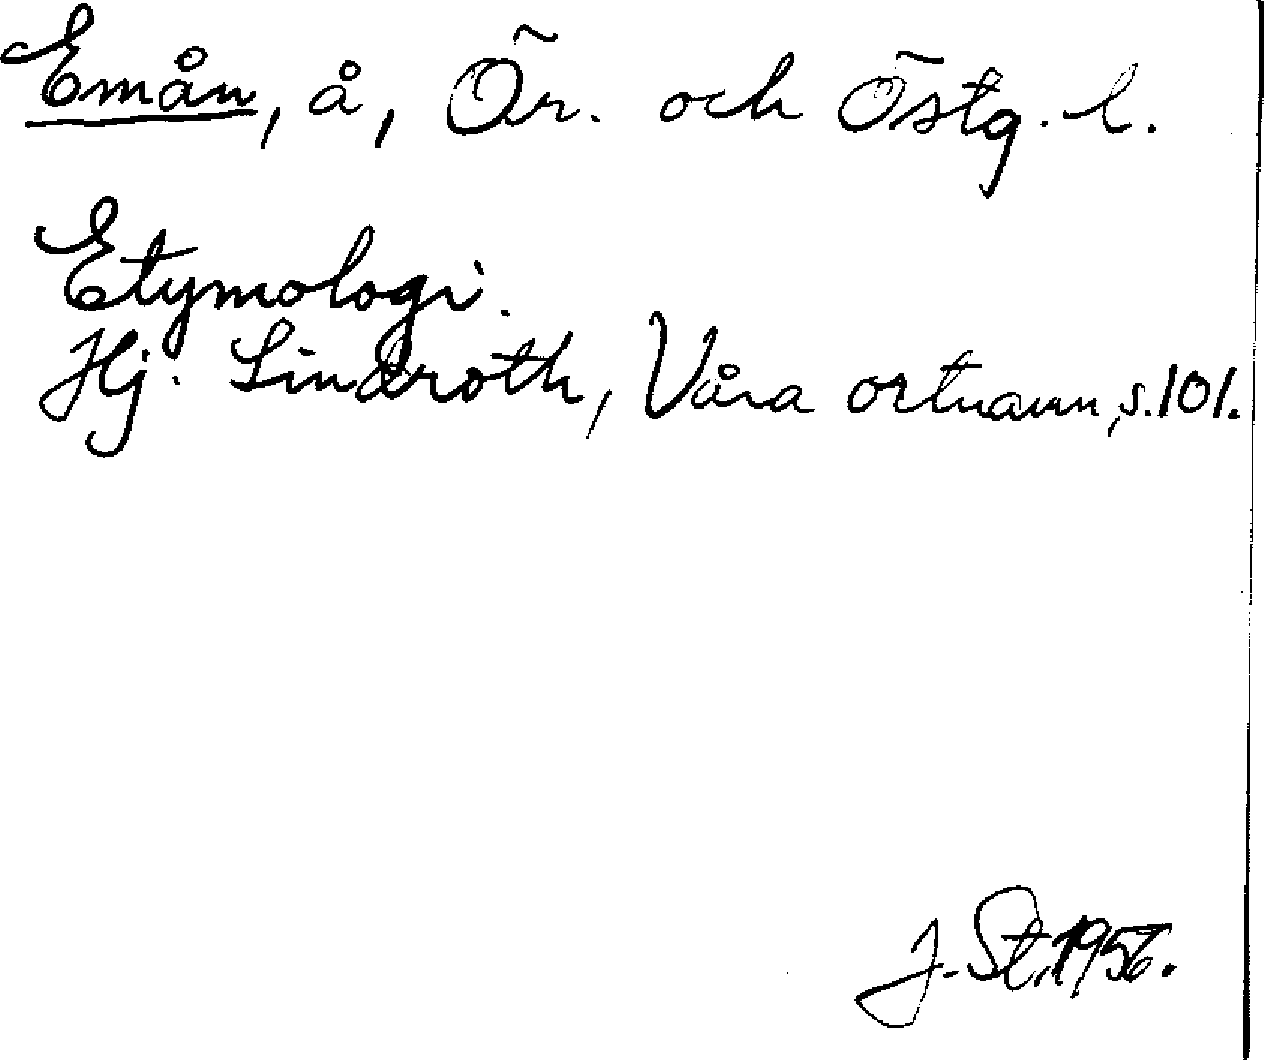 Emån, å, Ör. och Östg. l.
Etymologi.
Hj. Lindroth, Våra ortnamn, s. 101.
J. St. 1956.